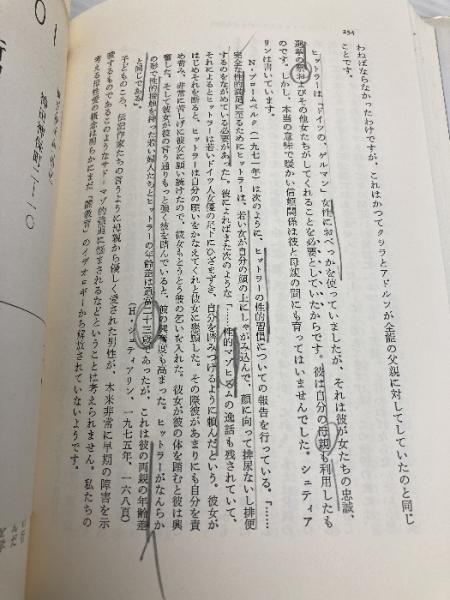 234
わねばならなかったわけですが、これはかつてクララとアドルフが全能の父親に対してしていたのと同じ
ことです。
ヒットラーは「ドイツの、ゲルマン」女性におべっかを使っていましたが、それは彼が女たちの忠誠、
選挙の票およびその他女たちがしてくれることを必要としていたからです。彼は自分の母親も利用したも
のです。しかし、本当の意味で暖かい信頼関係は彼と母親の間にも育ってはいませんでした。シュティア
リンは書いています。
N・ブロームベルク(一九七一年)は次のように、ヒットラーの性的習慣についての報告を行っている。「……
完全な性的満足に至るためにヒットラーは、若い女が自分の顔の上にしゃがみ込んで、顔に向って排尿ないし排便
するのをながめている必要があった」。彼によればまた次のような「……性的マゾヒズムの逸話も残されていて、
それによるとヒットラーは若いドイツ人女優の
自分を踏みつけるように頼んだという。彼女が
はじめそれを断ると、ヒットラーは自分の願いをかなえてくれと彼女に懇願した。その際彼があまりにも自分を責
め苛み、非常に苦しげに彼女に願い続けたので、彼女もとうとう彼の乞いを入れた。彼女が彼の体を踏むと彼は興
奮した。そして彼女が彼の言う通りもっと強く彼を踏んでいると、彼の興奮度も高まった。ヒットラーがなんらか
の形で性的接触を持った若い婦人たちとヒットラーの年齢差は通常二十三歳であったが、これは彼の両親の年齢差
と同じである。」
(H・シュティアリン、一九七五年、一六八頁)
子どものころ、伝記作家たちの言うように母親から優しく愛された男性が、本来非常に早期の障害を示
唆するものであるこのようなサド・マゾ的強迫に悩まされるなどということは考えられません。私たちの
考える母性愛の概念は明らかにまだ「闇教育」のイデオロギーから解放されていないようです。